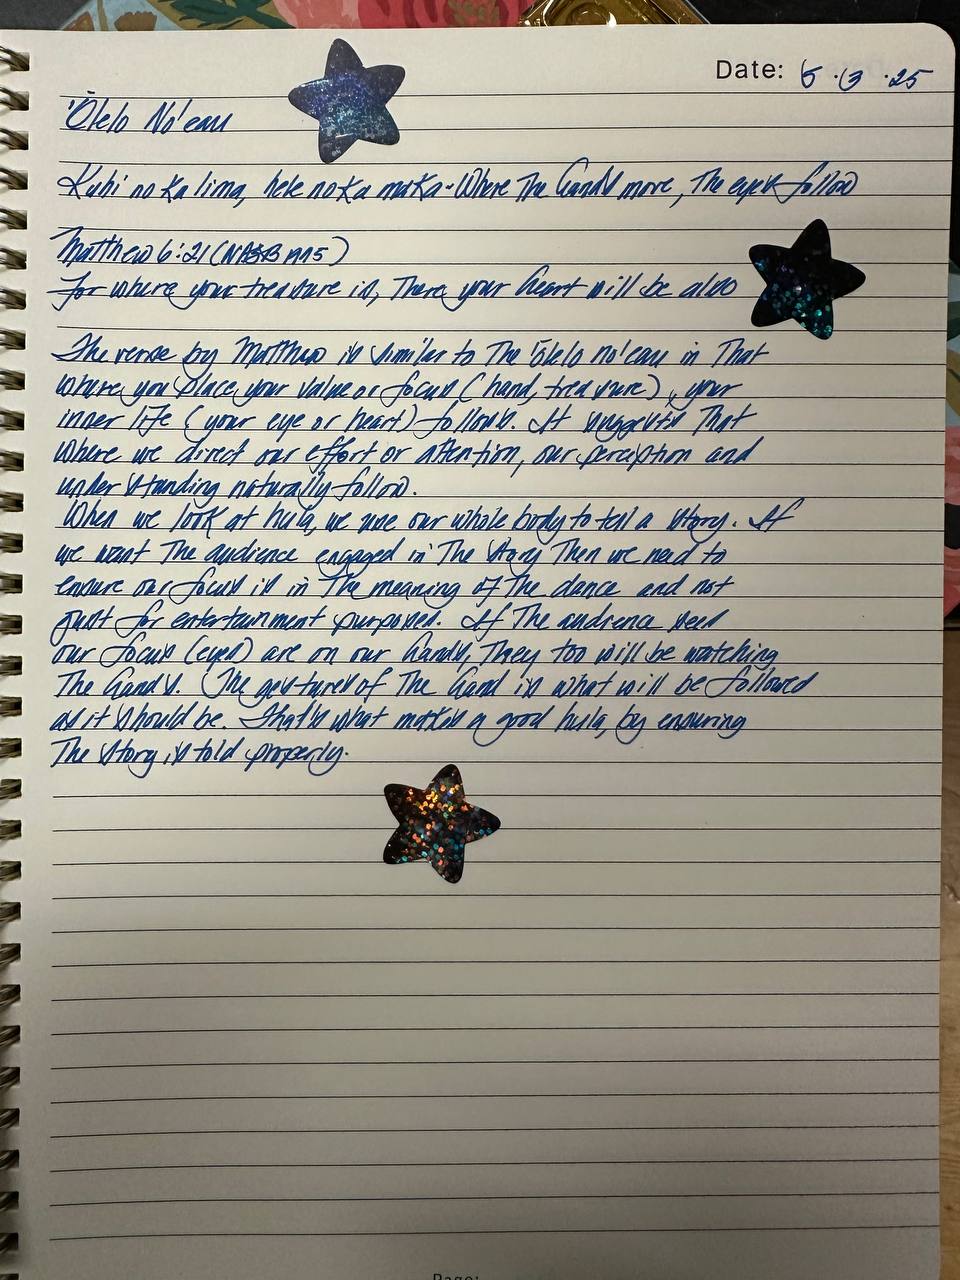 Date: 6 · 3 · 25
'Ōlelo No'eau
Kuhi no ka lima, hele no ka maka - Where The hands move, The eyes follow
Matthew 6:21 (NASB 1995)
For where your treasure is, There your heart will be also
The verse by Matthew is similar to The 'ōlelo no'eau in That
where you place your value or focus (hand, treasure), your
inner life (your eye or heart) follows. It suggests That
where we direct our effort or attention, our perception and
understanding naturally follow.
When we look at hula, we use our whole body to tell a story. If
we want The audience engaged in The story Then we need to
ensure our focus is in The meaning of The dance and not
just for entertainment purposes. If The audience sees
our focus (eyes) are on our hands, They too will be watching
The hands. The gestures of The hand is what will be followed
as it should be. That's what makes a good hula, by ensuring
The story is told properly.
Page: